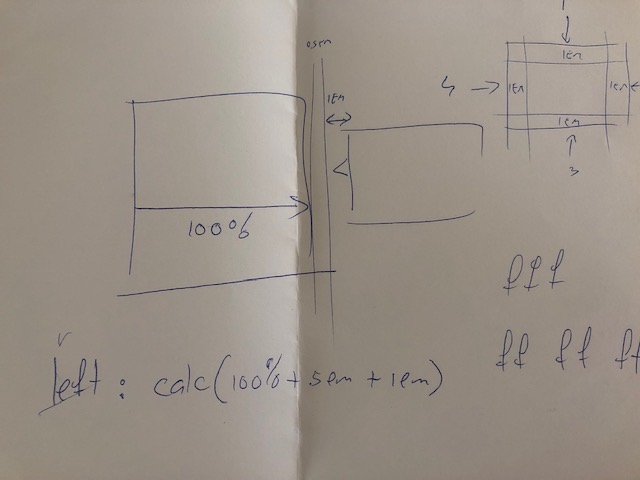 0.5em
1em
1em
4 1em 1em
1em
3
100%
f f f
ff ff ff
left: calc(100% + 5em + 1em)